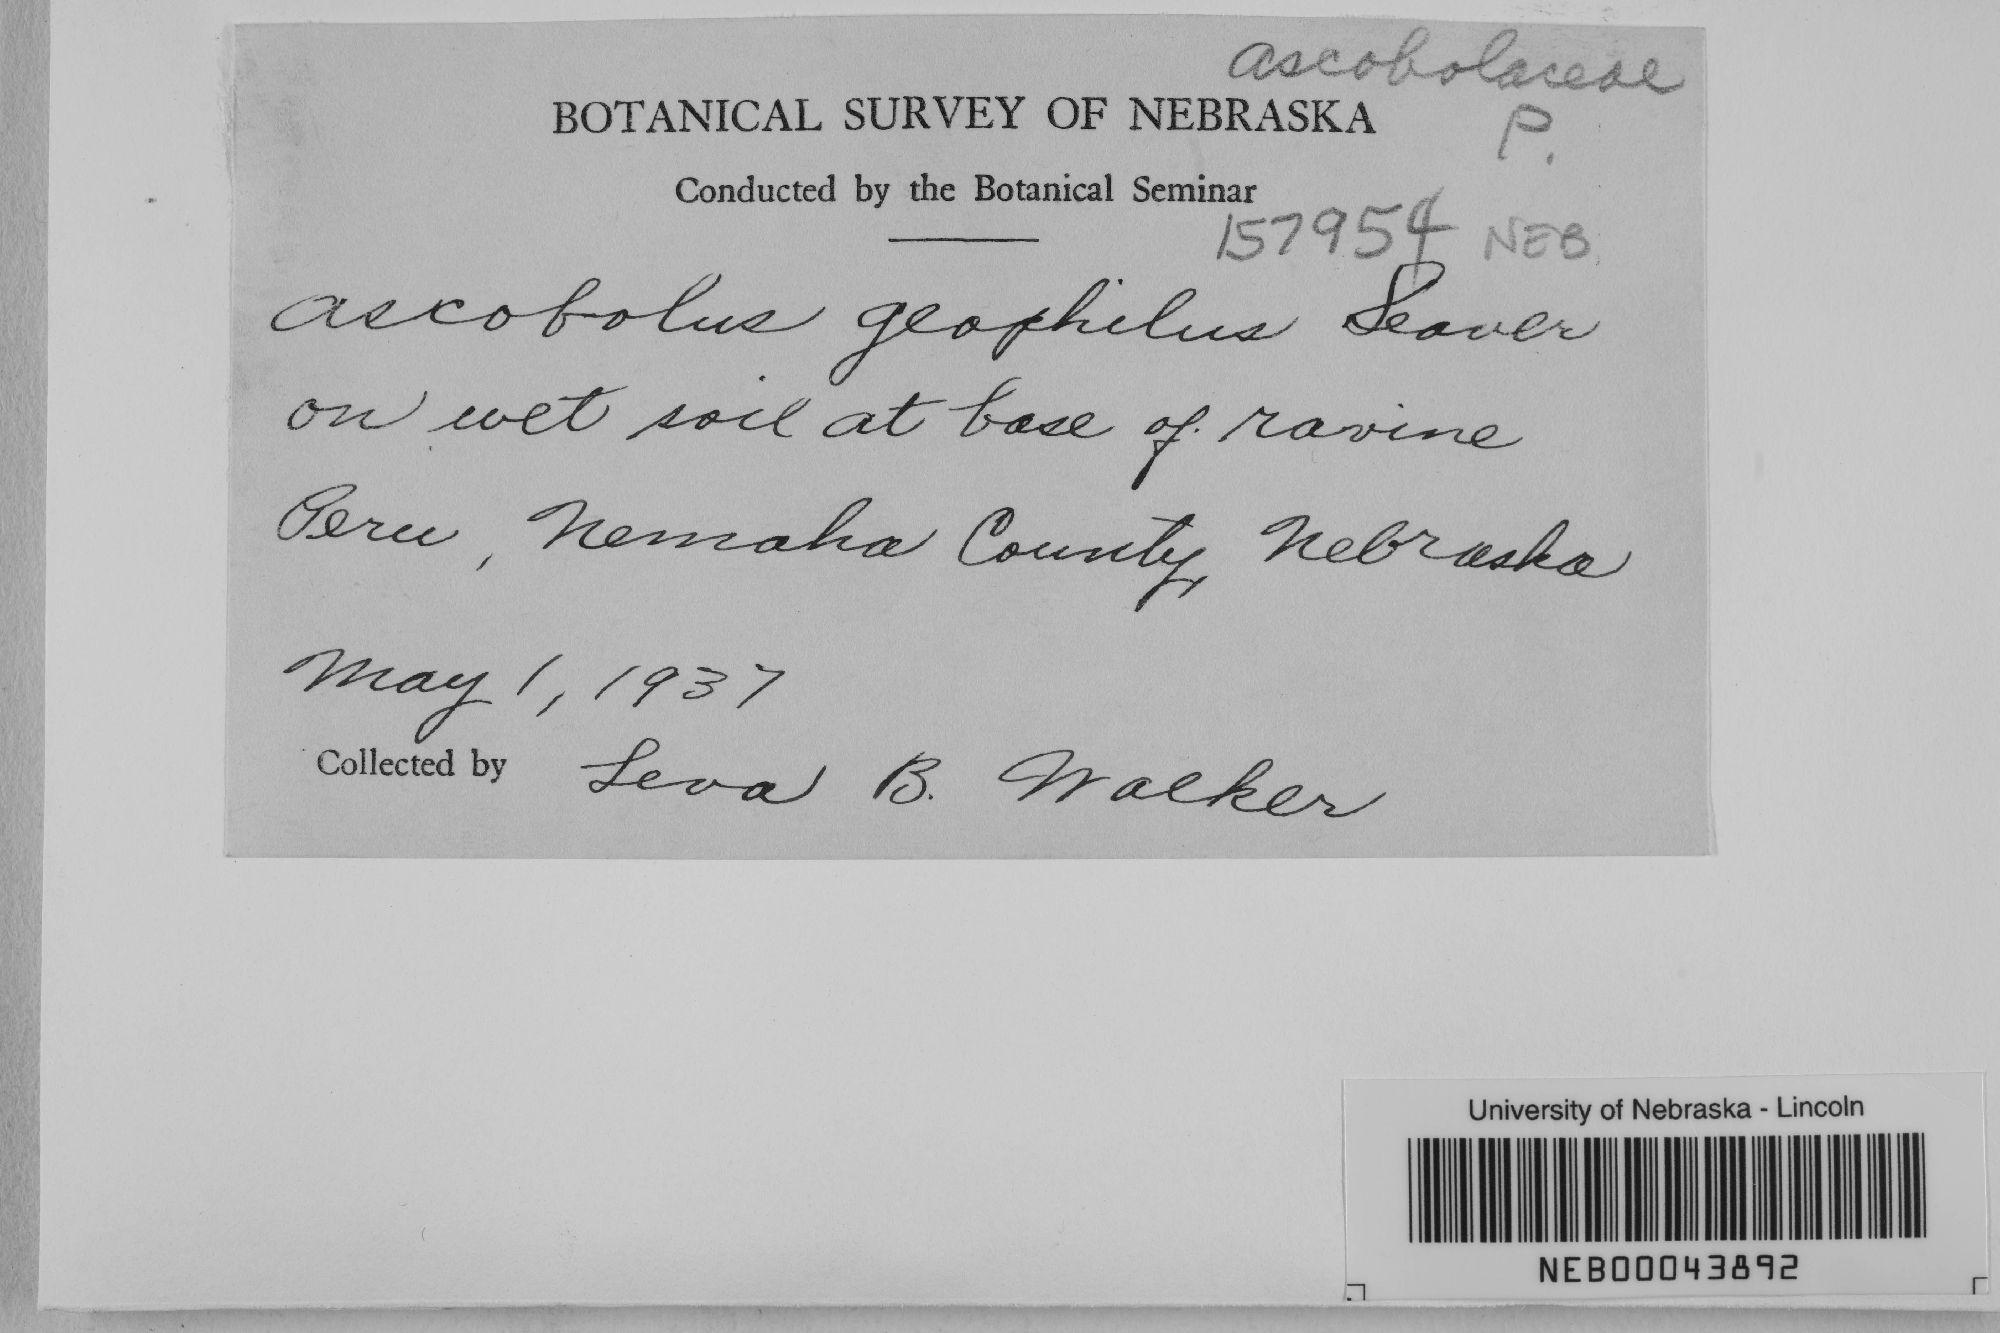 Ascobolaceae
BOTANICAL SURVEY OF NEBRASKA
P.
Conducted by the Botanical Seminar
157954 NEB
Ascobolus geophilus Seaver
on wet soil at base of ravine
Peru, Nemaha County, Nebraska
May 1, 1937
Collected by Leva B. Walker
University of Nebraska - Lincoln
NEB00043892